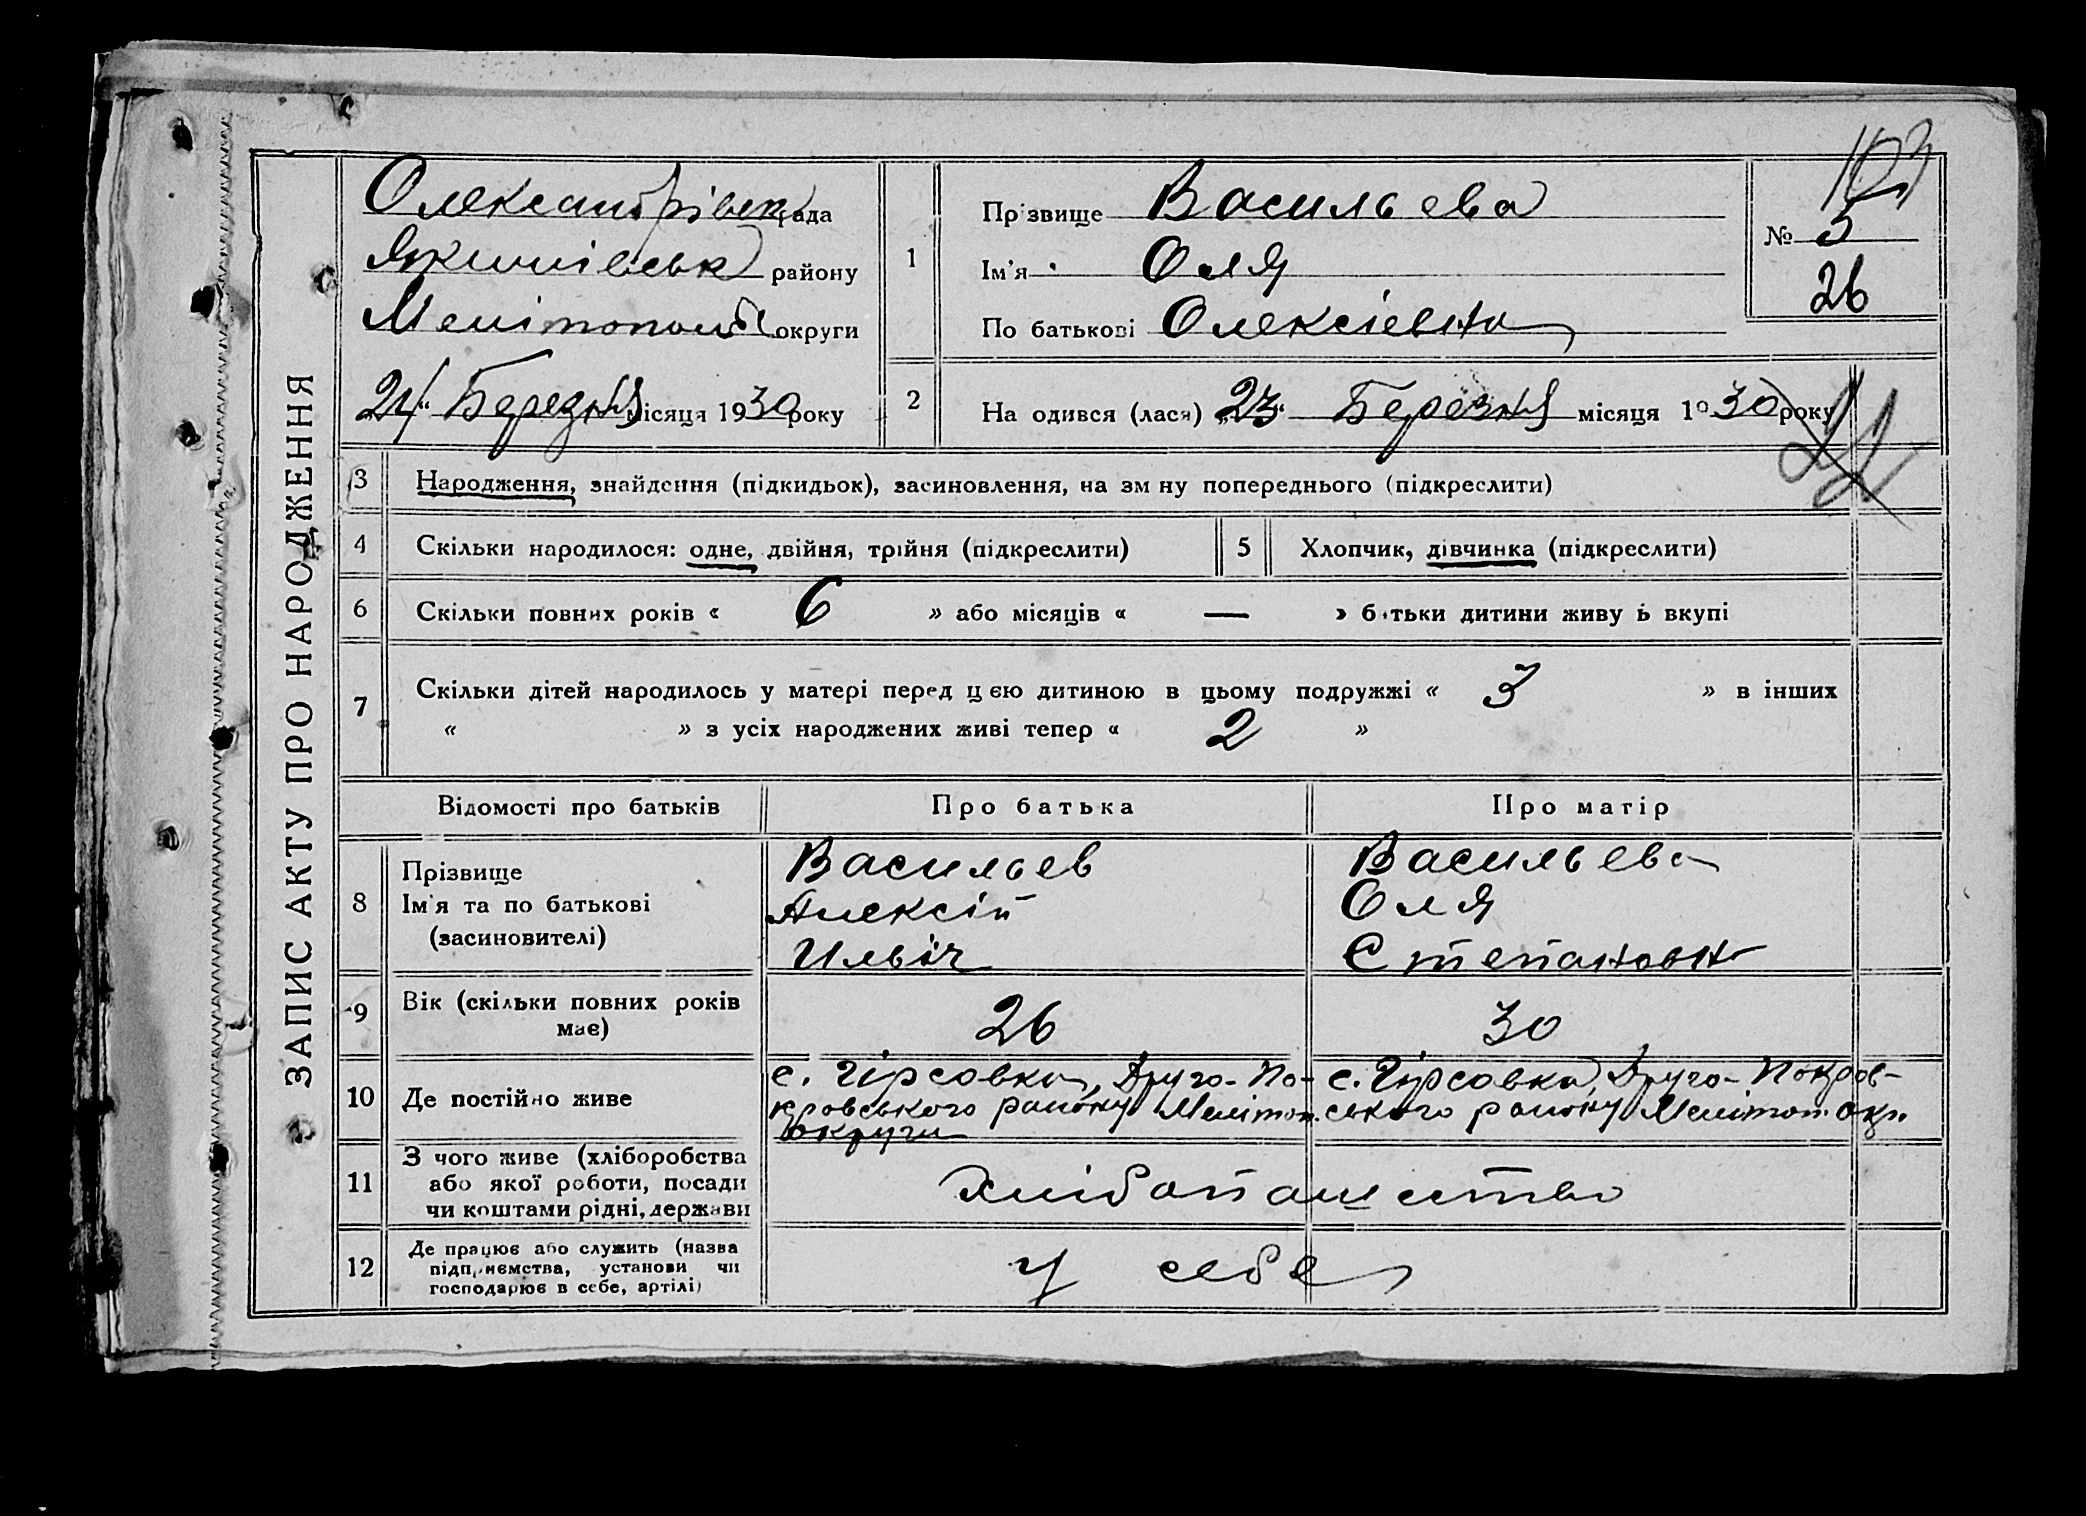 ЗАПИС АКТУ ПРО НАРОДЖЕННЯ
Олександрівськ рада
Якимівськ району
Мелітопольс округи
„24“ Березня місяця 1930 року
1
Прізвище Васильева
Ім'я Оля
По батькові Олексіевна
103
№ 5
26
2
На одився (лася) „23“ Березня місяця 1930 року
3
Народження, знайдення (підкидьок), засиновлення, на зм ну попереднього (підкреслити)
4
Скільки народилося: одне, двійня, трійня (підкреслити)
5
Хлопчик, дівчинка (підкреслити)
6
Скільки повних років « 6 » або місяців « — » батьки дитини живу ь вкупі
7
Скільки дітей народилось у матері перед цією дитиною в цьому подружжі « 3 » в інших
« » з усіх народжених живі тепер « 2 »
Відомості про батьків
Про батька
Про матір
8
Прізвище
Ім'я та по батькові
(засиновителі)
Васильев
Алексій
Ильіч
Васильева
Оля
Степановн
9
Вік (скільки повних років
має)
26
30
10
Де постійно живе
с. Гірсовка, Друго-По-
кровського району Мелітоп.
округи
с. Гірсовка, Друго-Покров-
ського району Мелітоп. окр.
11
З чого живе (хліборобства
або якої роботи, посади
чи коштами рідні, держави
хлібопашество
12
Де працює або служить (назва
підприємства, установи чи
господарює в себе, артілі)
у себе